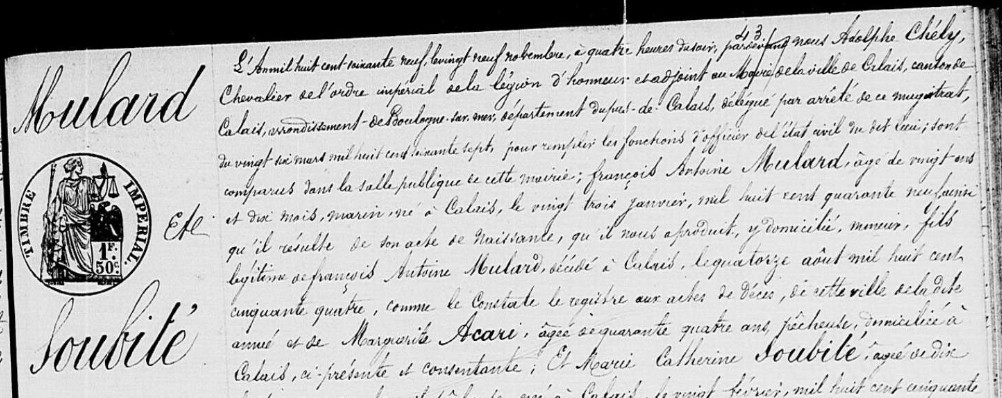 Mulard
Et
Soubité
TIMBRE IMPERIAL.
1F.
50c
43
L'An mil huit cent soixante neuf, le vingt neuf novembre, à quatre heures du soir, par devant nous Adolphe Chély,
Chevalier de l'ordre imperial de la légion d'honneur et adjoint au Maire de la ville de Calais, canton de
Calais, arrondissement de Boulogne-sur-mer, département du pas-de-Calais, délégué par arrêté de ce magistrat,
du vingt six mars mil huit cent soixante sept, pour remplir les fonctions d'officier de l'état civil du dit lieu; sont
comparus dans la salle publique de cette mairie; françois Antoine Mulard, âgé de vingt ans
et dix mois, marin, né à Calais, le vingt trois janvier, mil huit cent quarante neuf, ainsi
qu'il résulte de son acte de Naissance, qu'il nous a produit, y domicilié, mineur, fils
legitime de françois Antoine Mulard, décédé à Calais, le quatorze août mil huit cent
cinquante quatre, comme le Constate le registre aux actes de Décès, de cette ville de la dite
année et de Marguerite Acari, âgée de quarante quatre ans, pêcheuse, domiciliée à
Calais, ci-présente et consentante; Et Marie Catherine Soubité, âgée de dix
née à Calais, le vingt février, mil huit cent cinquante